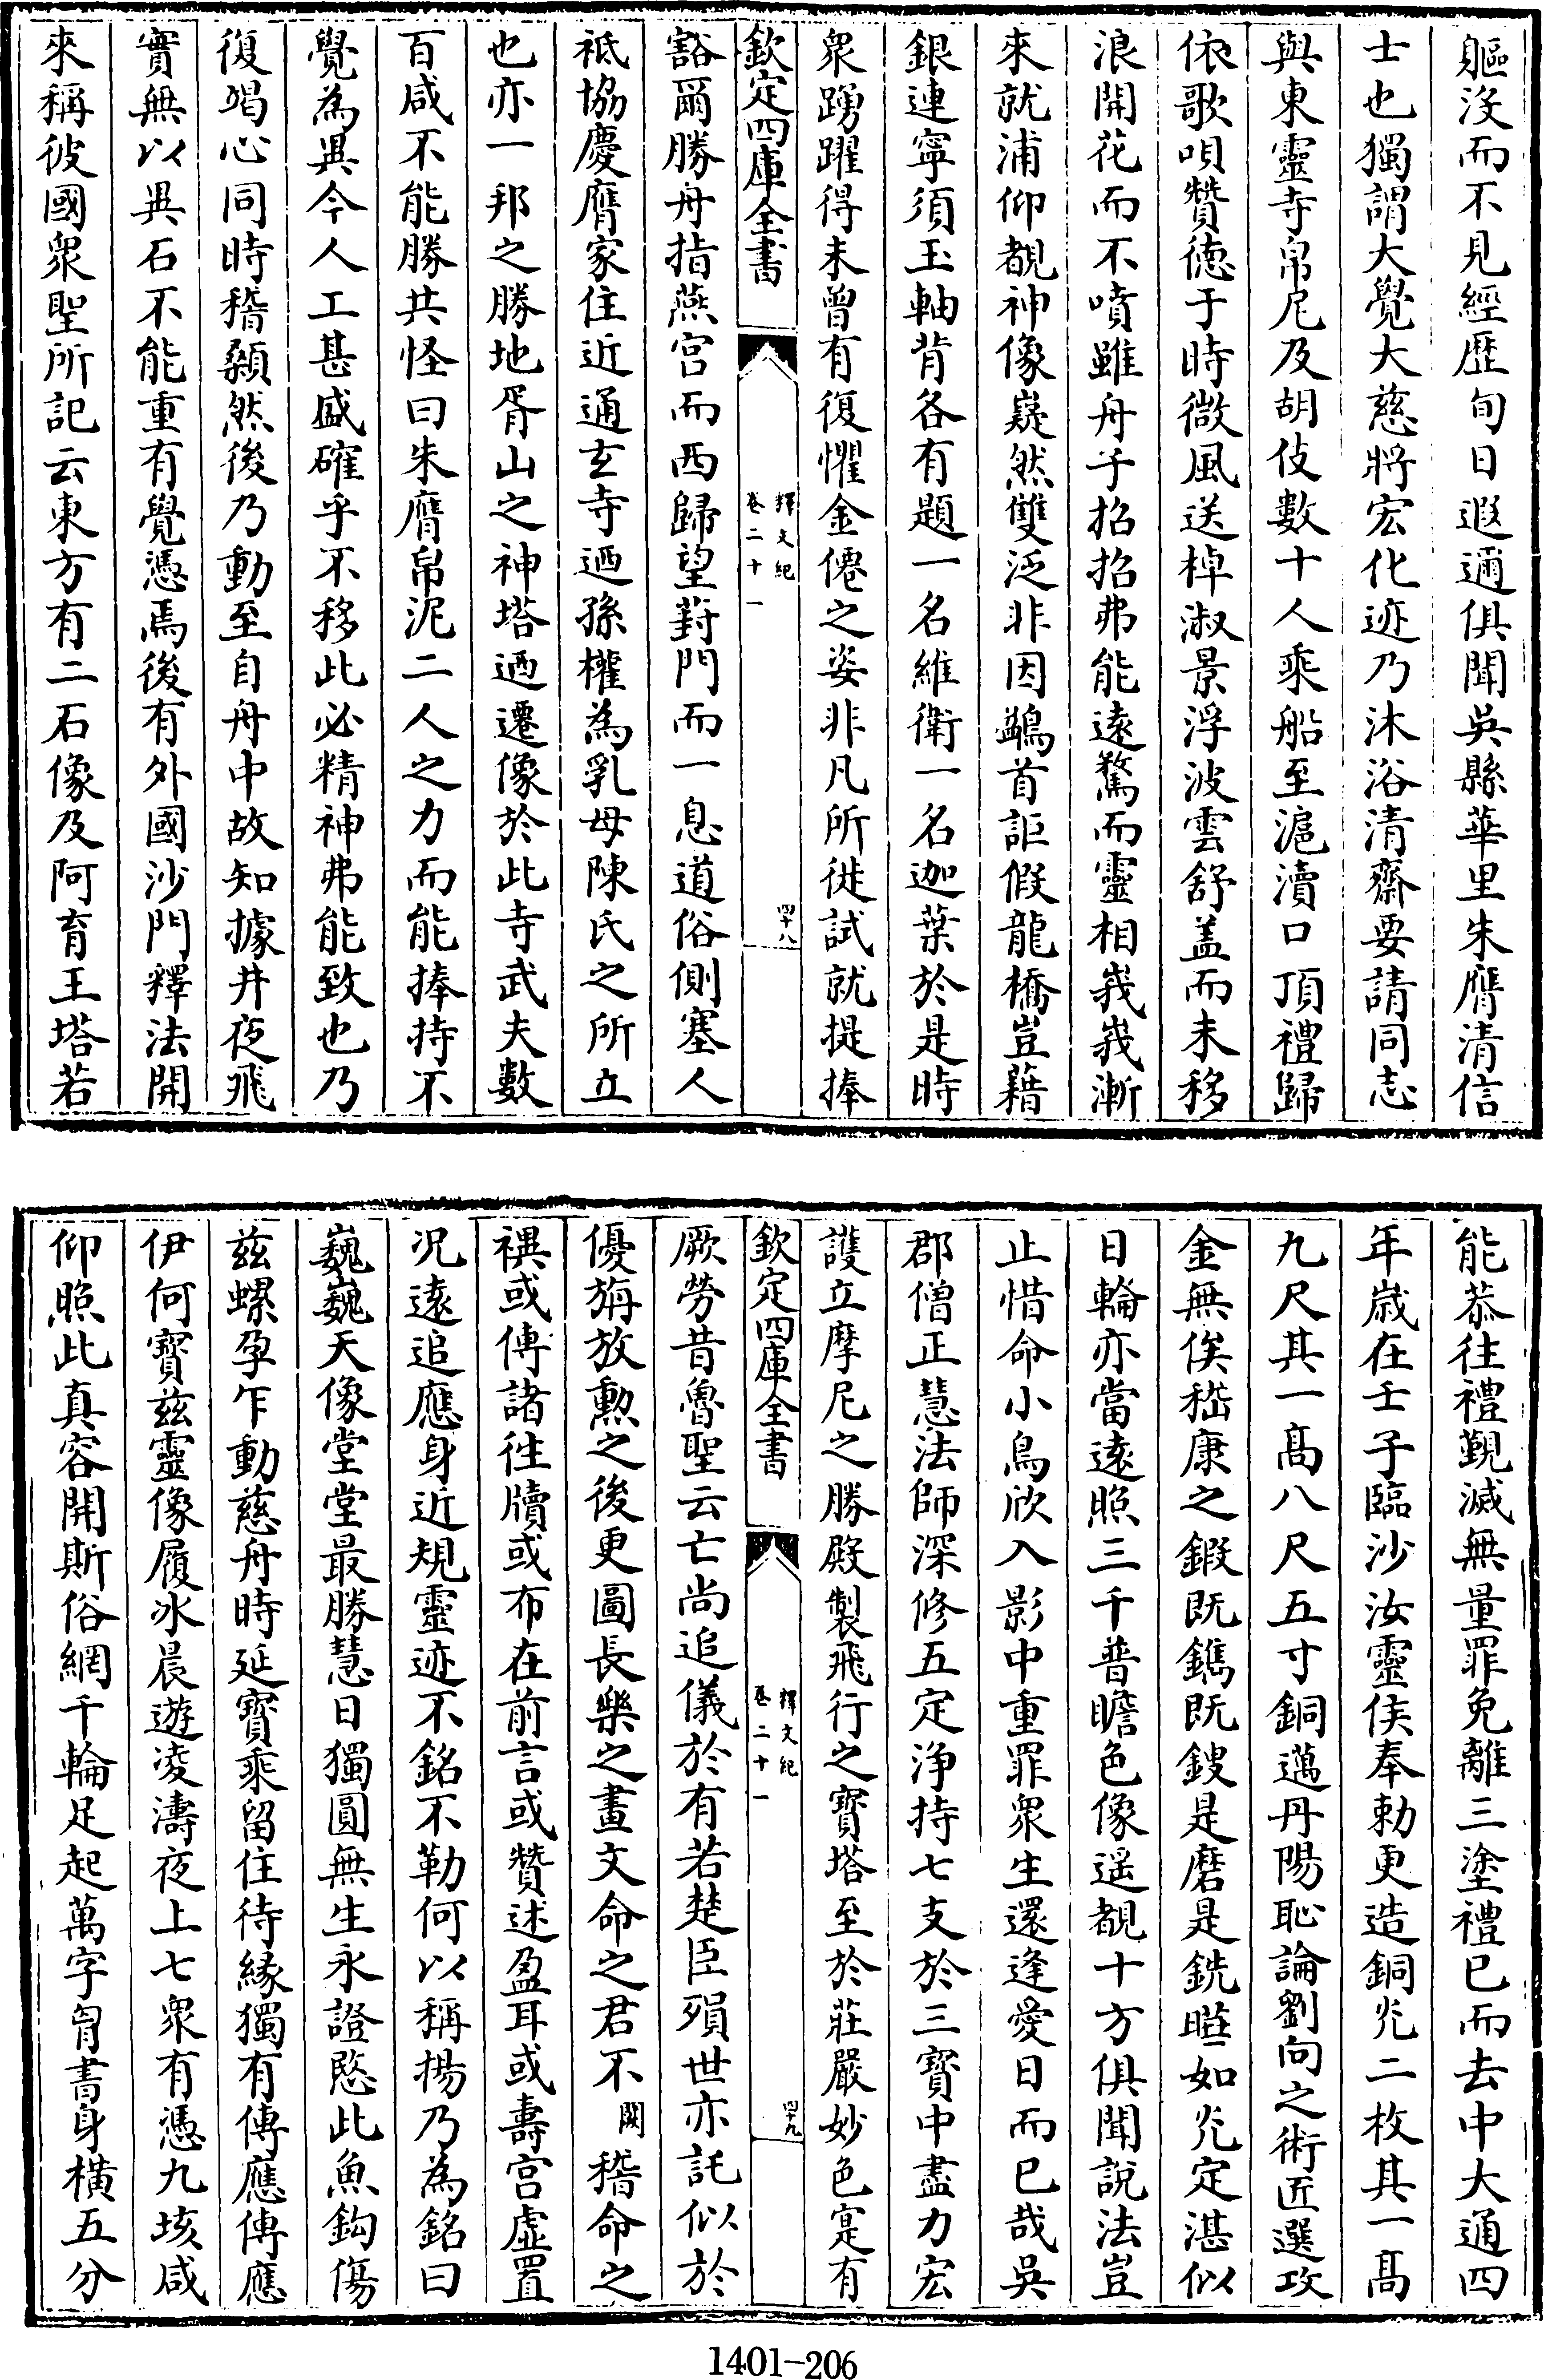 軀沒而不見經歴旬日遐邇俱聞吳縣華里朱膺清信
士也獨謂大覺大慈將宏化迹乃沐浴清齋要請同志
與東靈寺帛尼及胡伎數十人乘船至滬瀆口頂禮歸
依歌唄贊德于時微風送棹淑景浮波雲舒蓋而未移
浪開花而不噴雖舟子招招弗能遠騖而靈相峩峩漸
來就浦仰覩神像嶷然雙泛非因鷁首詎假龍橋豈藉
銀連寧須玉軸背各有題一名維衛一名迦葉於是時
衆踴躍得未曾有復懼金僊之姿非凡所徙試就提捧
欽定四庫全書
釋文紀
卷二十一
四十八
豁爾勝舟指燕宫而西歸望葑門而一息道俗側塞人
祗協慶膺家住近通玄寺迺孫權為乳母陳氏之所立
也亦一邦之勝地胥山之神塔迺遷像於此寺武夫數
百咸不能勝共怪曰朱膺帛泥二人之力而能捧持不
覺為異今人工甚盛確乎不移此必精神弗能致也乃
復竭心同時稽顙然後乃動至自舟中故知據井夜飛
實無以異石不能重有覺憑焉後有外國沙門釋法開
來稱彼國衆聖所記云東方有二石像及阿育王塔若
能恭往禮覲滅無量罪免離三塗禮已而去中大通四
年嵗在壬子臨沙汝靈侯奉勅更造銅光二枚其一髙
九尺其一髙八尺五寸銅邁丹陽恥論劉向之術匠選攻
金無俟嵇康之鍛既鐫既鎪是磨是銑曀如光定湛似
日輪亦當遠照三千普瞻色像遥覩十方俱聞說法豈
止惜命小鳥欣入影中重罪衆生還逢愛日而已哉吳
郡僧正慧法師深修五定浄持七支於三寶中盡力宏
護立摩尼之勝殿製飛行之寶塔至於莊嚴妙色寔有
欽定四庫全書
釋文紀
卷二十一
四十九
厥勞昔魯聖云亡尚追儀於有若楚臣殞世亦託似於
優旃放勲之後更圖長樂之畫文命之君不闕稽命之
禩或傳諸往牘或布在前言或贊述盈耳或壽宫虚置
况遠追應身近規靈迹不銘不勒何以稱揚乃為銘曰
巍巍天像堂堂最勝慧日獨圓無生永證愍此魚鈎傷
兹螺孕乍動慈舟時延寶乘留住待緣獨有傳應傳應
伊何寳兹靈像履冰晨遊凌濤夜上七衆有憑九垓咸
仰照此真容開斯俗網千輪足起萬字胷書身橫五分
1401-206